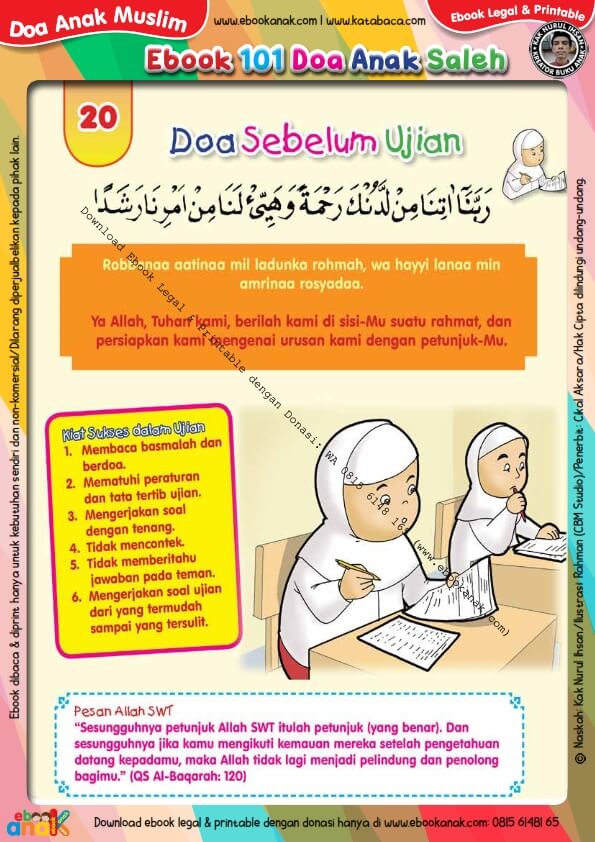 Doa Anak Muslim
www.ebookanak.com | www.katabaca.com
Ebook Legal & Printable
KAK NURUL IHSAN
KREATOR BUKU ANAK
Ebook 101 Doa Anak Saleh
20
Doa Sebelum Ujian
رَبَّنَآ اٰتِنَا مِنْ لَّدُنْكَ رَحْمَةً وَّهَيِّئْ لَنَا مِنْ اَمْرِنَا رَشَدًا
Robbanaa aatinaa mil ladunka rohmah, wa hayyi lanaa min
amrinaa rosyadaa.
Ya Allah, Tuhan kami, berilah kami di sisi-Mu suatu rahmat, dan
persiapkan kami mengenai urusan kami dengan petunjuk-Mu.
Kiat Sukses dalam Ujian
1. Membaca basmalah dan
berdoa.
2. Mematuhi peraturan
dan tata tertib ujian.
3. Mengerjakan soal
dengan tenang.
4. Tidak mencontek.
5. Tidak memberitahu
jawaban pada teman.
6. Mengerjakan soal ujian
dari yang termudah
sampai yang tersulit.
Download Ebook Legal & Printable dengan Donasi: WA 0815 6148 165 (www.ebookanak.com)
Pesan Allah SWT
“Sesungguhnya petunjuk Allah SWT itulah petunjuk (yang benar). Dan
sesungguhnya jika kamu mengikuti kemauan mereka setelah pengetahuan
datang kepadamu, maka Allah tidak lagi menjadi pelindung dan penolong
bagimu.” (QS Al-Baqarah: 120)
Ebook dibaca & diprint hanya untuk kebutuhan sendiri dan non-komersial/Dilarang diperjualbelikan kepada pihak lain.
© Naskah: Kak Nurul Ihsan/Ilustrasi: Rahman (CBM Studio)/Penerbit: Cikal Aksara/Hak Cipta dilindungi undang-undang.
ebook
anak
Download ebook legal & printable dengan donasi hanya di www.ebookanak.com: 0815 6148 165